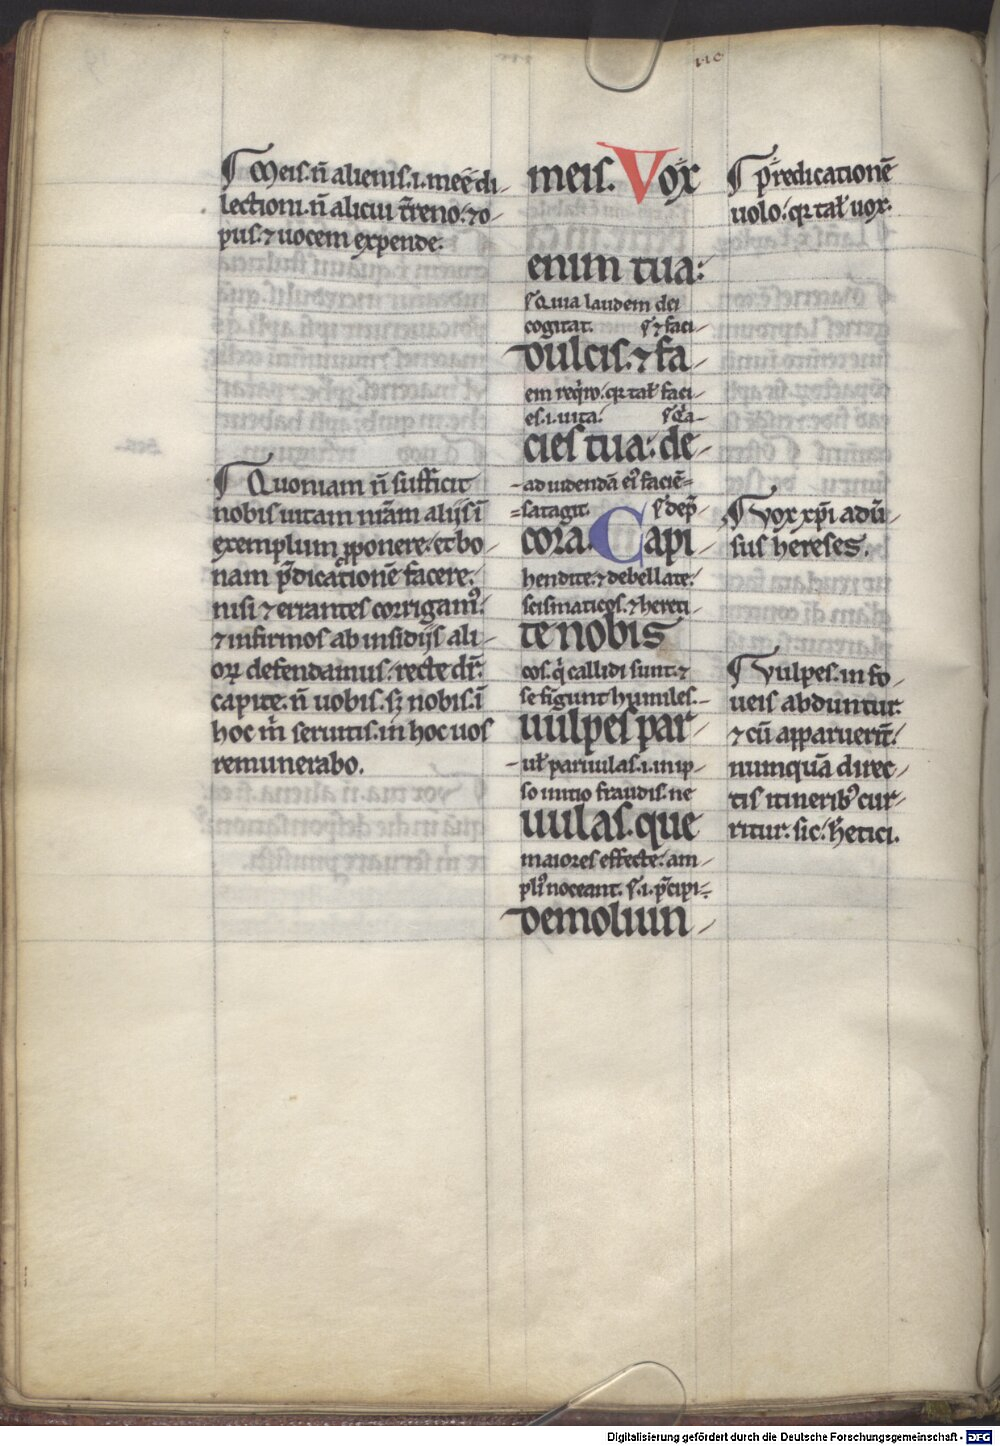 ¶ Meis. n̄ alienis. i. meę di-
lectioni. n̄ alicui t̄reno. ⁊ o-
pus. ⁊ uocem expende.
¶ Quoniam n̄ sufficit
nobis uitam nr̄am alijs ī
exemplum ꝓponere. et bo-
nam p̄dicationē facere.
nisi ⁊ errantes corrigamꝰ.
⁊ infirmos ab insidijs ali-
oꝝ defendamus. recte dr̄.
capite. n̄ uobis. sꝫ nobis. ī
hoc m̄ seruitis. in hoc uos
remunerabo.
meis. Vox
enim tua.
Quia laudem dei
cogitat. ⁊ faci-
dulcis. ⁊ fa
em req̇ro. qr tał faci-
es. i. uita. Q̄a-
cies tua. de-
-ad uidendā eiꝰ faciē=
=satagit. dep̄-
cora. Capi
hendite. ⁊ debellate.
scismaticos. ⁊ hereti-
te nobis
cos. q̇ callidi sunt. ⁊
se fingunt humiles.
uulpes par-
-uł paruulas. i. in ip-
so initio fraudis. ne
uulas. que
maiores effecte. am-
pliꝰ noceant. s. i. p̄cipi-
demoliun-
¶ Predicationē
uolo. qr tał uox.
¶ Vox xp̄i adū-
sus hereses.
¶ Vulpes. in fo-
ueis abduntur.
⁊ cū apparuerīt.
numquā direc-
tis itineribꝰ cur-
ritur. sic. h̄etici.
Digitalisierung gefördert durch die Deutsche Forschungsgemeinschaft - DFG